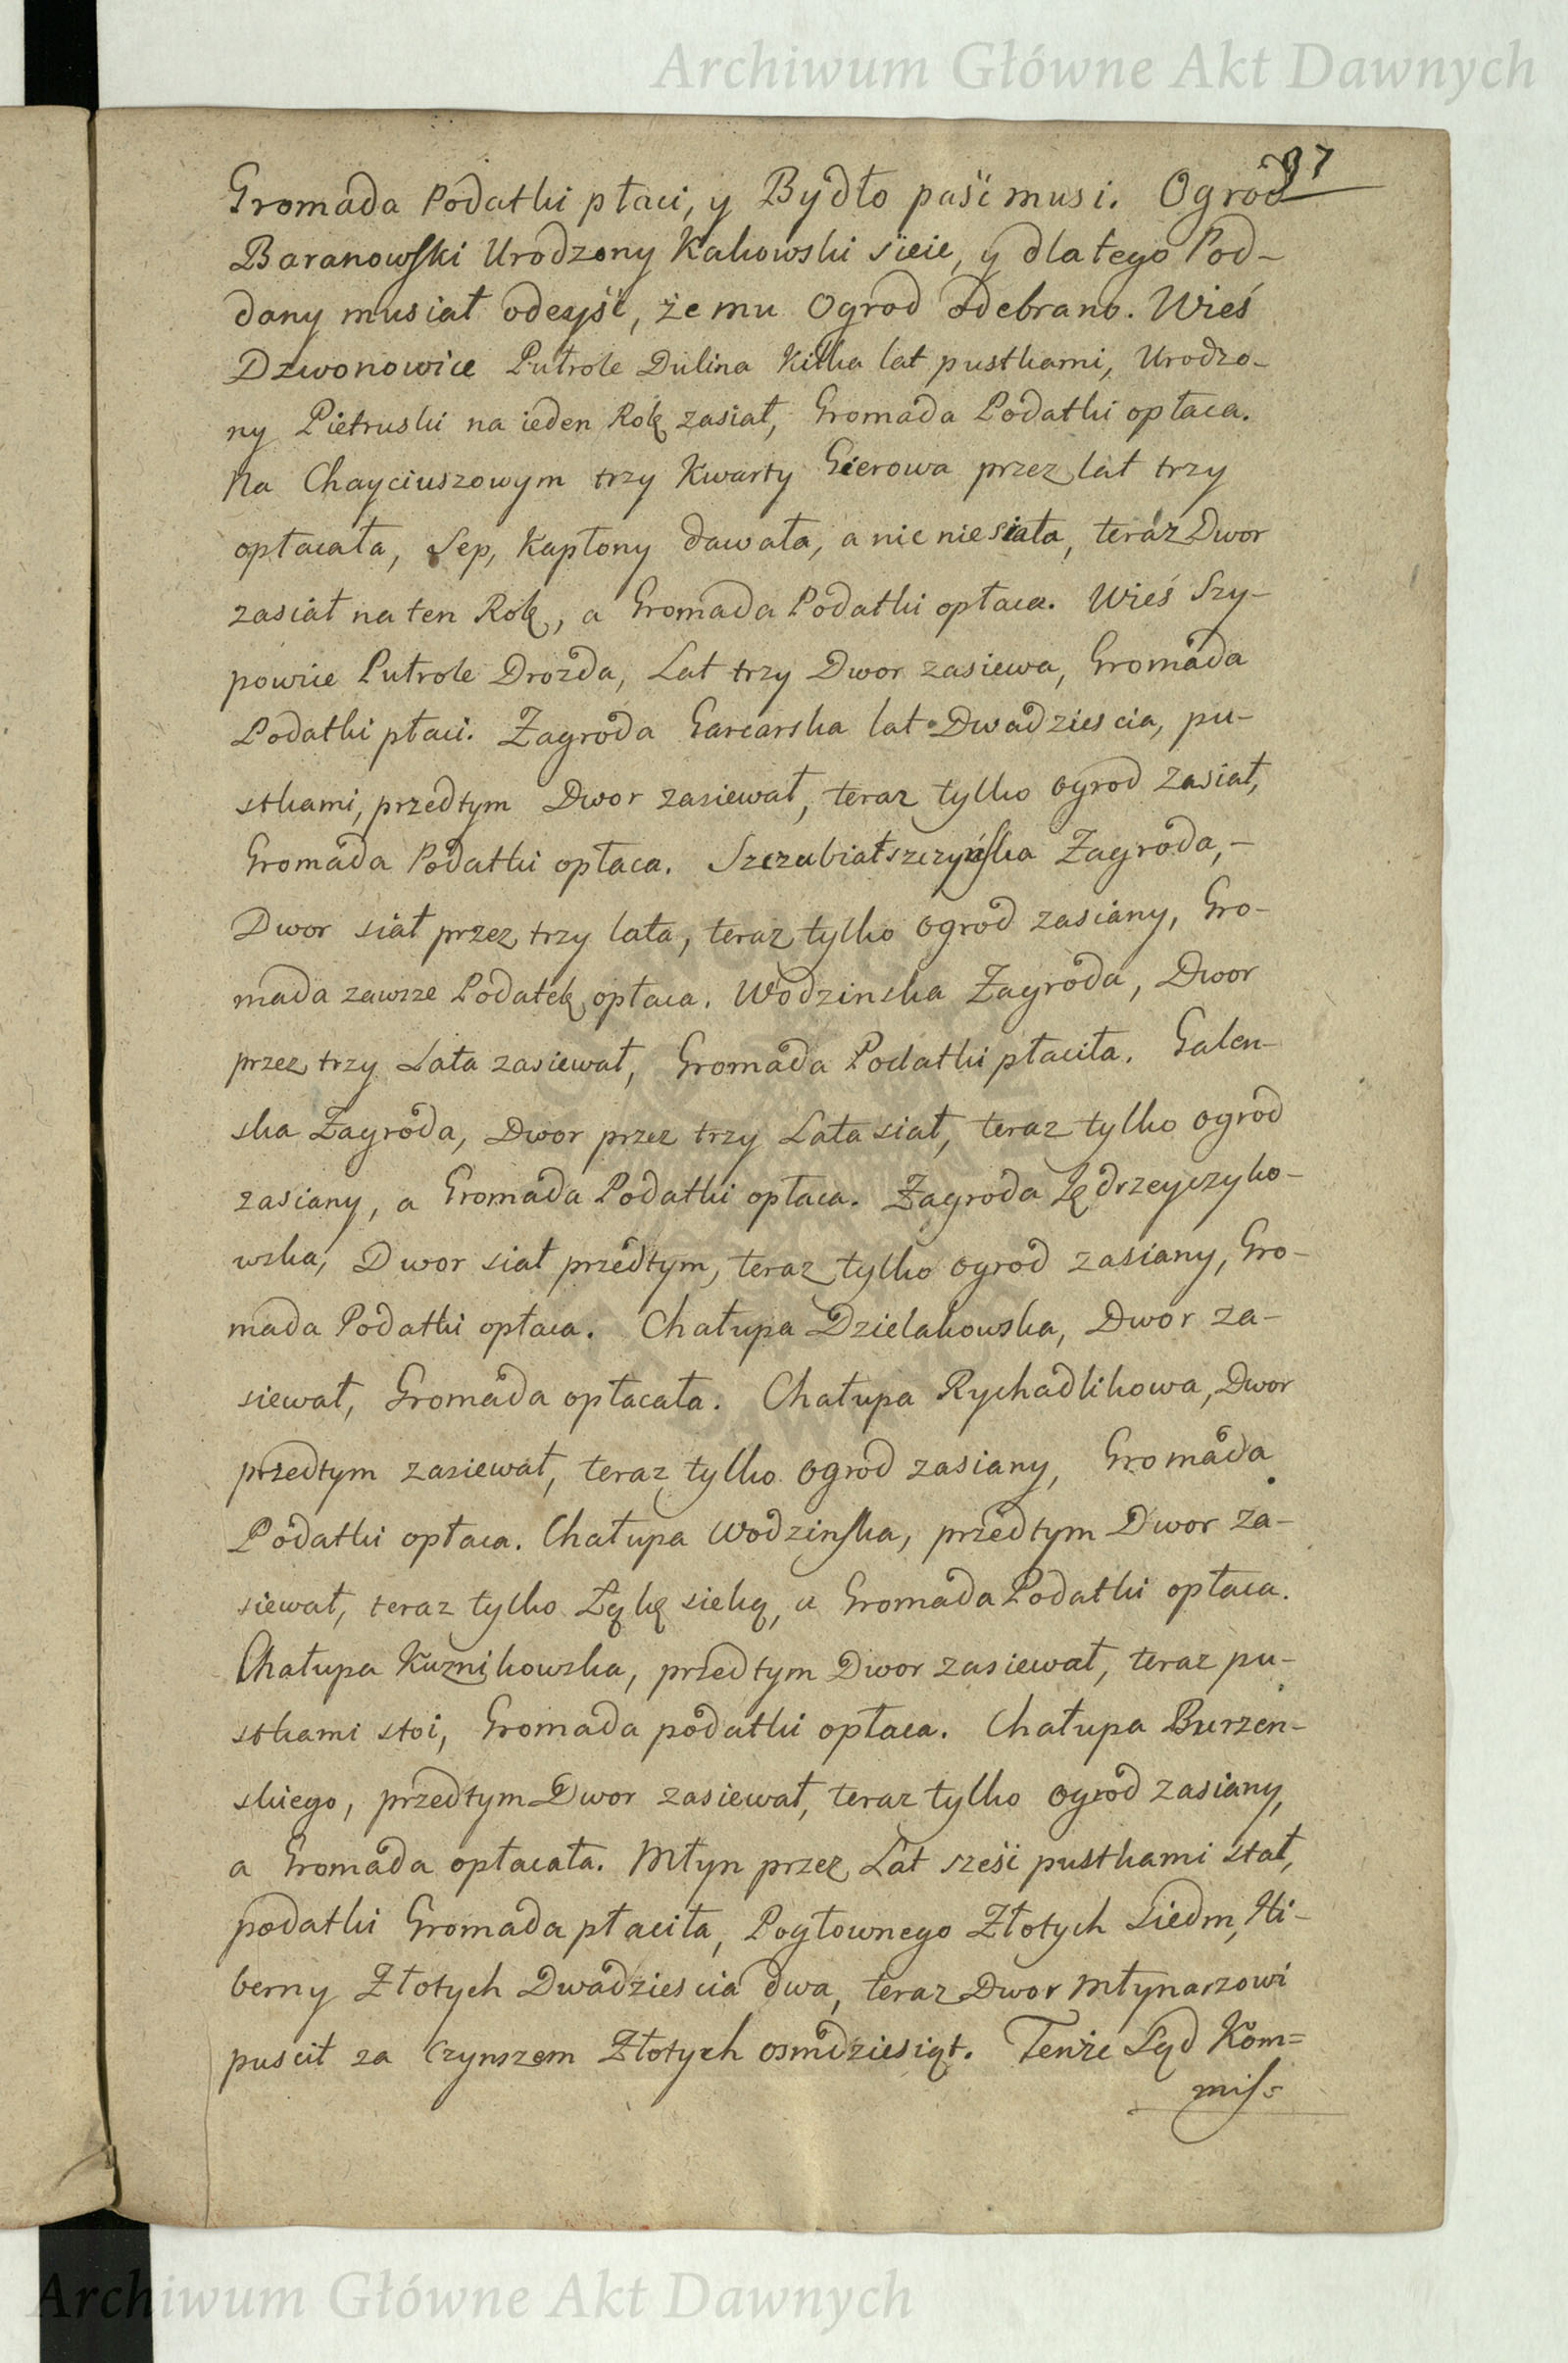 Archiwum Główne Akt Dawnych
37
Gromada Podatki płaci, y Bydło paść musi. Ogrod
Baranowski Urodzony Kakowski sieie, y dlatego Pod-
dany musiał odeyść, że mu Ogrod odebrano. Wieś
Dzwonowice Putrole Dulina Kilka lat pustkami, Urodzo-
ny Pietruski na ieden Rok zasiał, Gromada Podatki opłaca.
Na Chayciuszowym trzy Kwarty Gierowa przez lat trzy
opłacała, Sep, Kapłony dawała, a nic nie siała, teraz Dwor
zasiał na ten Rok, a Gromada Podatki opłaca. Wieś Szy-
powice Putrole Drozda, Lat trzy Dwor zasiewa, Gromada
Podatki płaci. Zagroda Garcarska lat Dwadziescia, pu-
stkami, przedtym Dwor zasiewał, teraz tylko ogrod zasiał,
Gromada Podatki opłaca. Szczubiałszczyńska Zagroda,-
Dwor siał przez trzy lata, teraz tylko ogrod zasiany, Gro-
mada zawsze Podatek opłaca. Wodzinska Zagroda, Dwor
przez trzy Lata zasiewał, Gromada Podatki płaciła. Galen-
ska Zagroda, Dwor przez trzy Lata siał, teraz tylko ogrod
zasiany, a Gromada Podatki opłaca. Zagroda Jędrzeyczyko-
wska, Dwor siał przedtym, teraz tylko ogrod zasiany, Gro-
mada Podatki opłaca. Chałupa Dzielakowska, Dwor za-
siewał, Gromada opłacała. Chałupa Rychadlikowa, Dwor
przedtym zasiewał, teraz tylko ogrod zasiany, Gromada
Podatki opłaca. Chałupa Wodzinska, przedtym Dwor za-
siewał, teraz tylko Łąkę sieką, a Gromada Podatki opłaca.
Chałupa Kuznikowska, przedtym Dwor zasiewał, teraz pu-
stkami stoi, Gromada podatki opłaca. Chałupa Burzen-
skiego, przedtym Dwor zasiewał, teraz tylko ogrod zasiany,
a Gromada opłacała. Młyn przez Lat sześć pustkami stał,
podatki Gromada płaciła, Pogłownego Złotych siedm, Hi-
berny Złotych Dwadziescia dwa, teraz Dwor Młynarzowi
puscił za Czynszem Złotych osmdziesiąt. Tenże Sąd Kom=
miss
Archiwum Główne Akt Dawnych